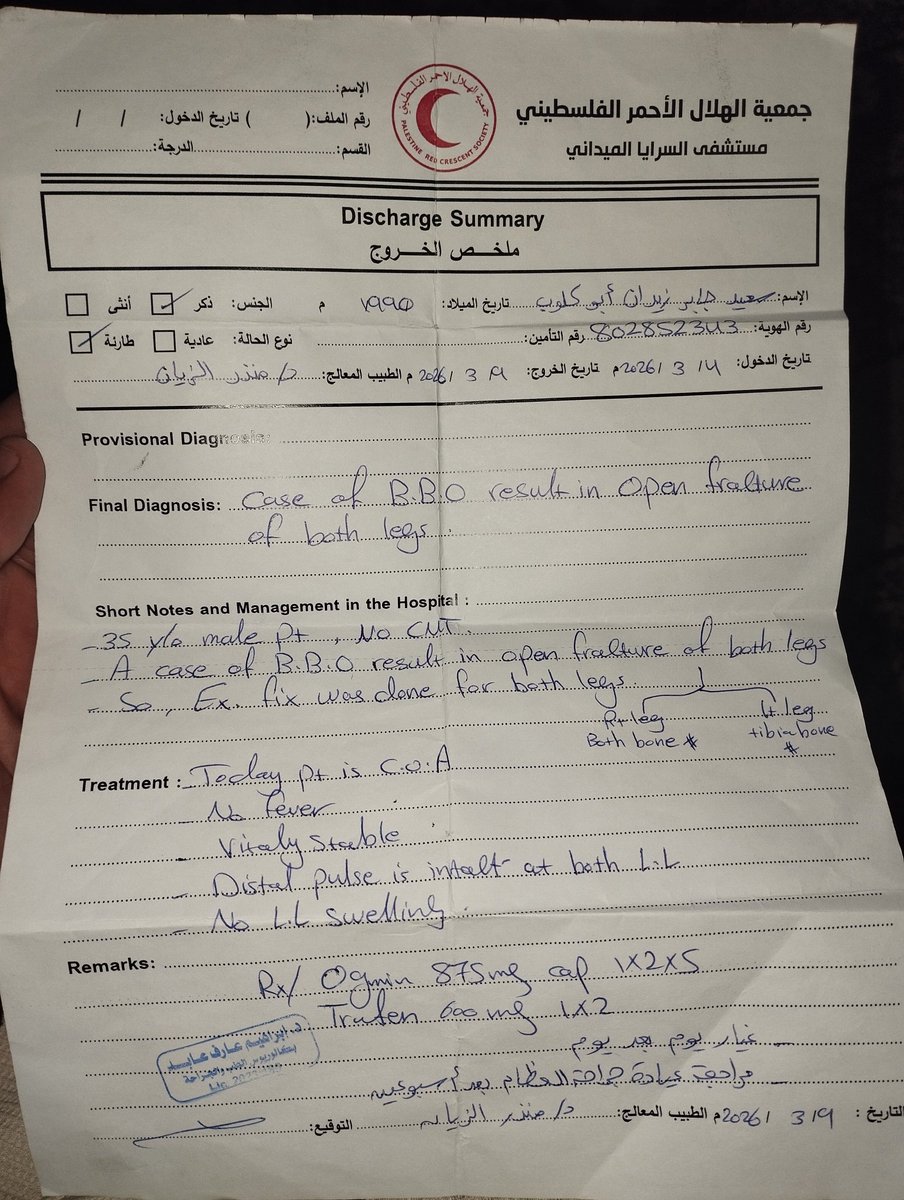 جمعية الهلال الأحمر الفلسطيني
مستشفى السرايا الميداني
جمعية الهلال الأحمر الفلسطيني
PALESTINE RED CRESCENT SOCIETY
الإسم:
رقم الملف: ( ) تاريخ الدخول: / /
القسم: الدرجة:
Discharge Summary
ملخص الخروج
الإسم: سعيد جابر زيدان أبو كلوب تاريخ الميلاد: ١٩٩٥ م الجنس: ذكر أنثى
رقم الهوية: 802852343 رقم التأمين: نوع الحالة: عادية طارئة
تاريخ الدخول: 2026 / 3 / 4 م تاريخ الخروج: 2026 / 3 / 9 م الطبيب المعالج: د/ منذر الزيان
Provisional Diagnosis:
Final Diagnosis: Case of B.B.O result in open fralture
of both legs.
Short Notes and Management in the Hospital :
- 35 y/o male pt, No CMT.
- A case of B.B.O result in open fralture of both legs
- So, Ex. fix was done for both legs.
Rt leg Both bone #
Lt leg tibia bone #
Treatment : - Today pt is C.O.A
- No fever
- Vitaly stable
- Distal pulse is intalt at both L.L
- No L.L swelling.
Remarks:
Rx/ Ogmin 875mg cap 1x2x5
Trufen 600 mg 1x2
- غيار يوم بعد يوم
- مراجعة عيادة جراحة العظام بعد أسبوعين
د. ابراهيم عارف عايد
التاريخ : 2026 / 3 / 9 م الطبيب المعالج: د/ منذر الزيان التوقيع: